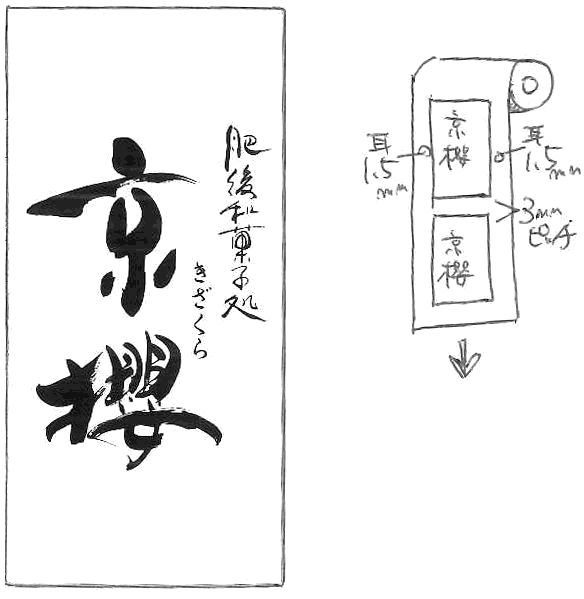 肥後和菓子処
きざくら
京櫻
京櫻
耳
1.5mm
耳
1.5mm
3mm
ピッチ
京櫻